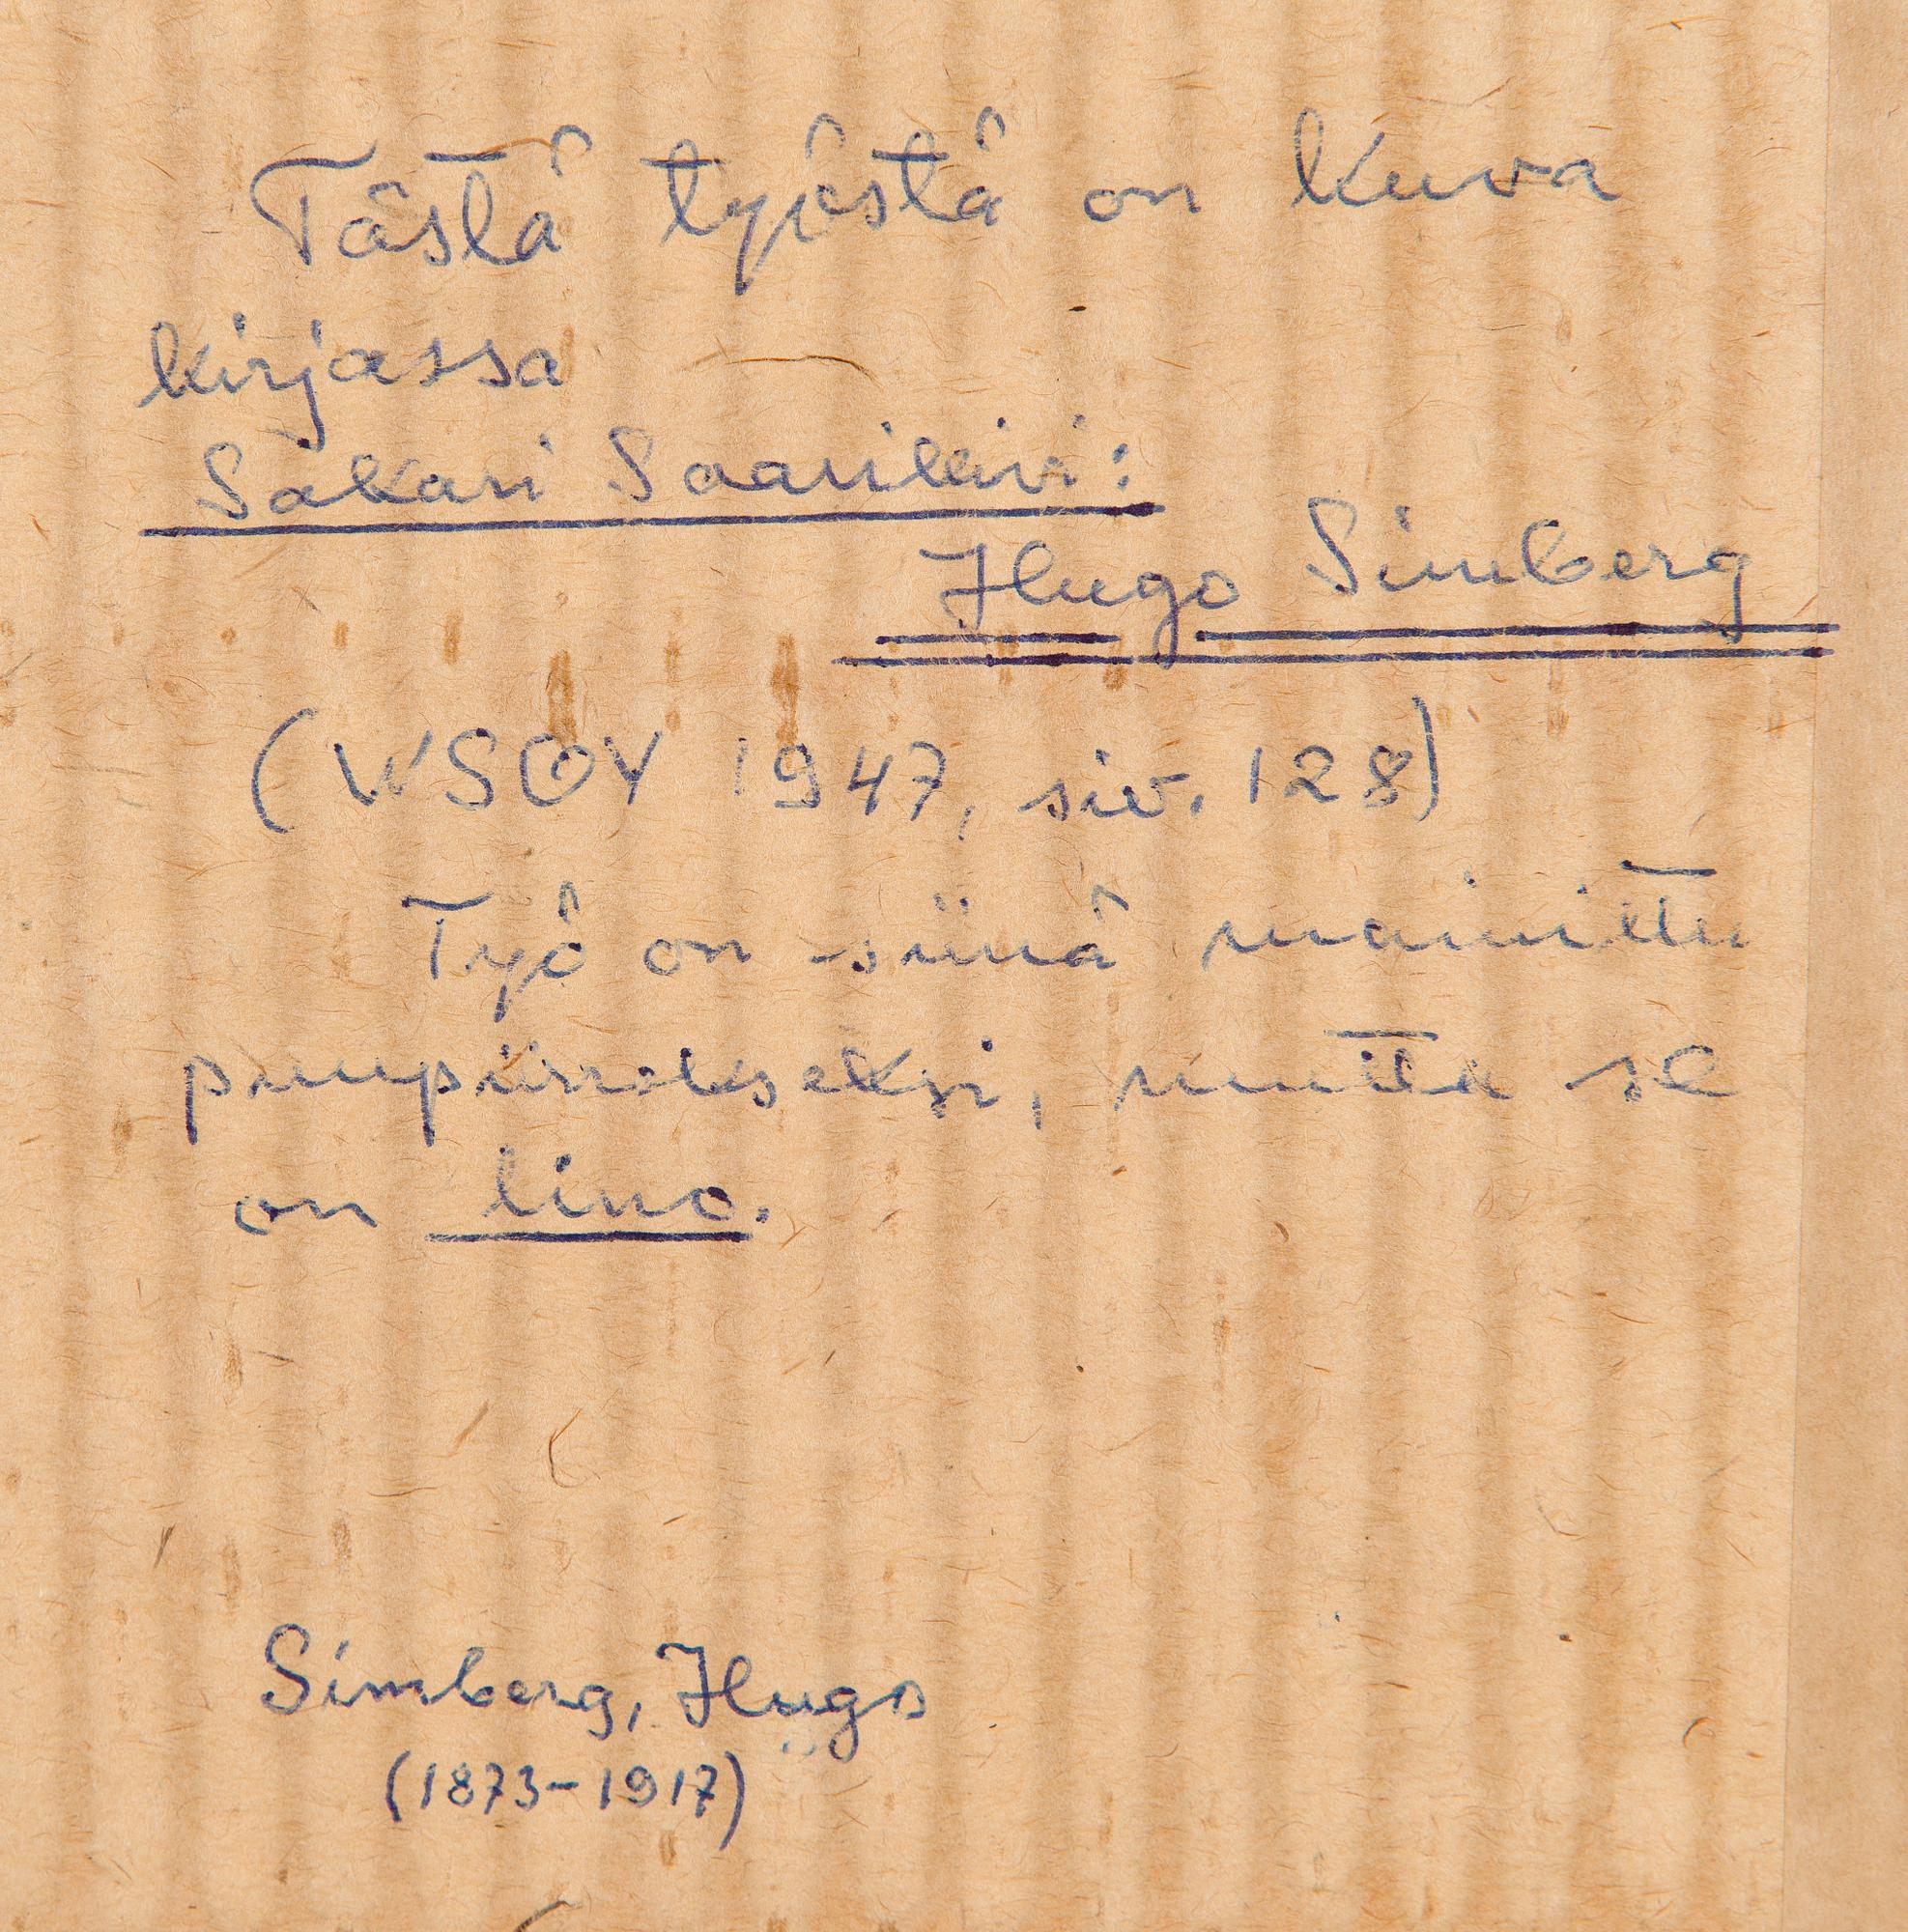 Tästä työstä on kuva
kirjassa
Sakari Saarikivi:
Hugo Simberg
(WSOY 1947, siv. 128)
Työ on siinä mainittu
puupiirrokseksi, mutta se
on lino.
Simberg, Hugo
(1873-1917)